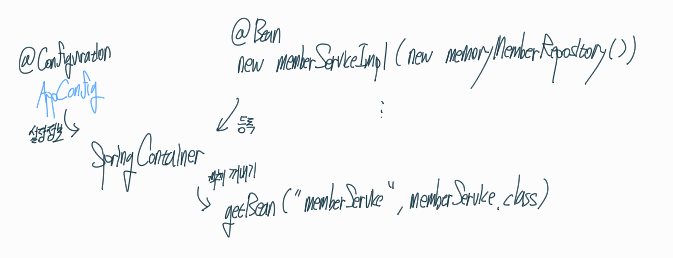 @Configuration
AppConfig
설정정보
@Bean
new memberServiceImpl (new memoryMemberRepository())
⋮
등록
Spring Container
객체 꺼내기
getBean ("memberService", memberService.class)